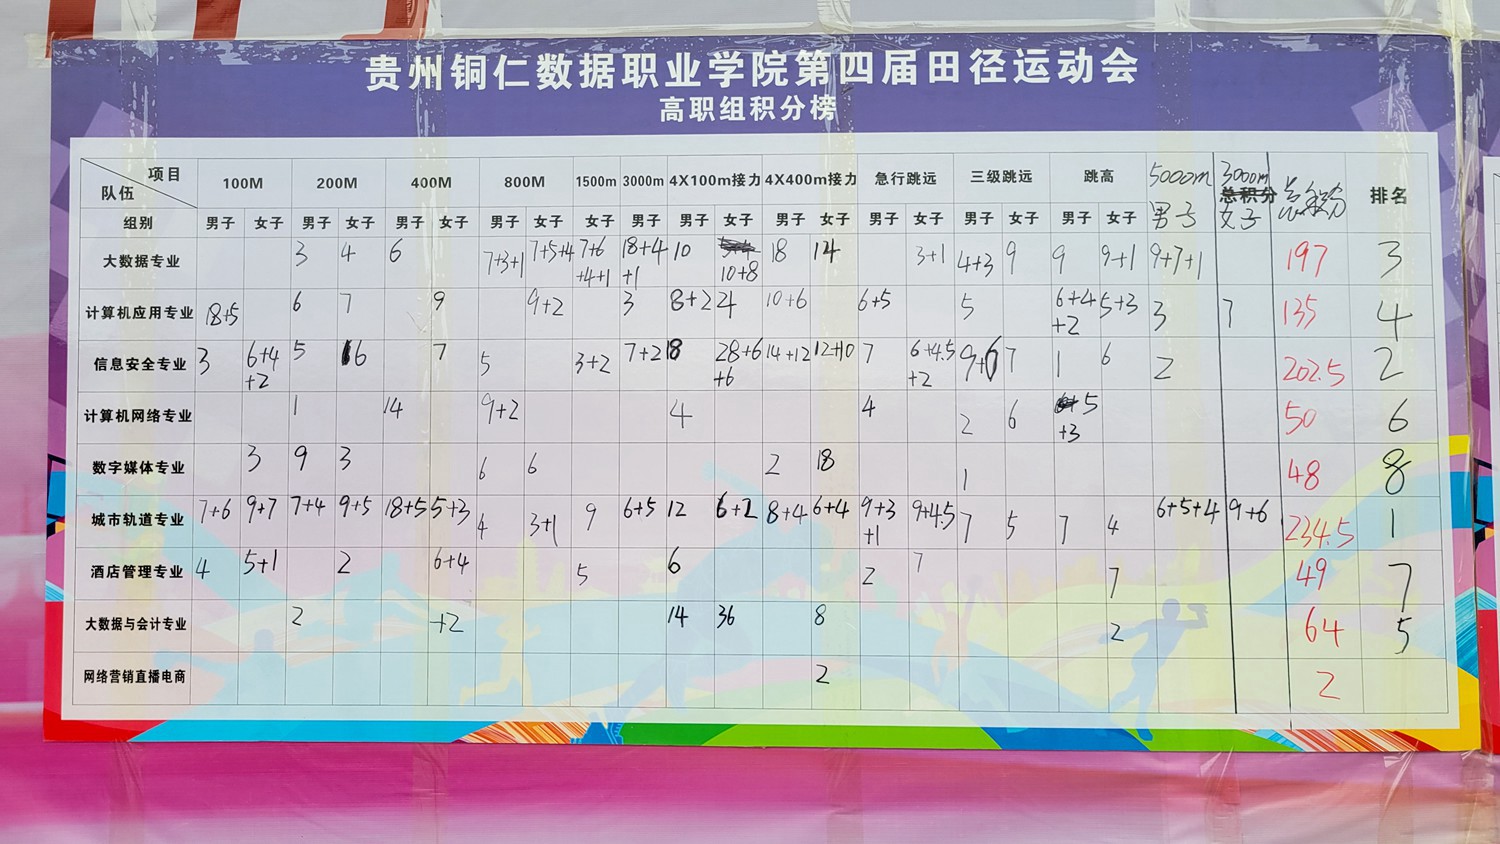 贵州铜仁数据职业学院第四届田径运动会
高职组积分榜
项目 队伍 100M 200M 400M 800M 1500m 3000m 4X100m接力 4X400m接力 急行跳远 三级跳远 跳高 5000m 3000m 总积分 总积分 排名
组别 男子 女子 男子 女子 男子 女子 男子 女子 男子 男子 男子 女子 男子 女子 男子 女子 男子 女子 男子 女子 男子 女子
大数据专业 3 4 6 7+3+1 7+5+4 7+6+4+1 18+4+1 10 10+8 18 14 3+1 4+3 9 9 9+1 9+7+1 197 3
计算机应用专业 18+5 6 7 9 9+2 3 8+2 4 10+6 6+5 5 6+4+2 5+3 3 7 135 4
信息安全专业 3 6+4+2 5 6 7 5 3+2 7+2 18 28+6+6 14+12 12+10 7 6+4.5+2 9+6 7 1 6 2 202.5 2
计算机网络专业 1 14 9+2 4 4 2 6 5+3 50 6
数字媒体专业 3 9 3 6 6 2 18 1 48 8
城市轨道专业 7+6 9+7 7+4 9+5 18+5 5+3 4 3+1 9 6+5 12 6+2 8+4 6+4 9+3+1 9+4.5 7 5 7 4 6+5+4 9+6 234.5 1
酒店管理专业 4 5+1 2 6+4 5 6 2 7 7 49 7
大数据与会计专业 2 +2 14 36 8 2 64 5
网络营销直播电商 2 2